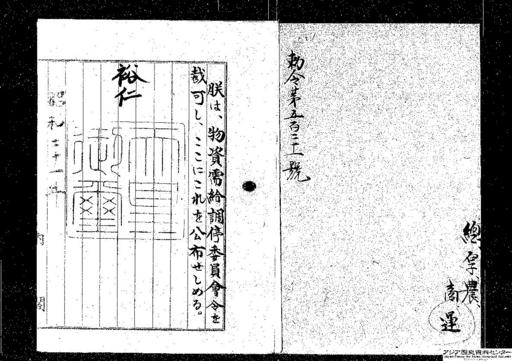 勅令第五百三十一號
總、厚、農
商
運
朕は、物資需給調停委員會令を
裁可し、ここにこれを公布せしめる。
裕仁
昭和二十一年
内閣
アジア歴史資料センター